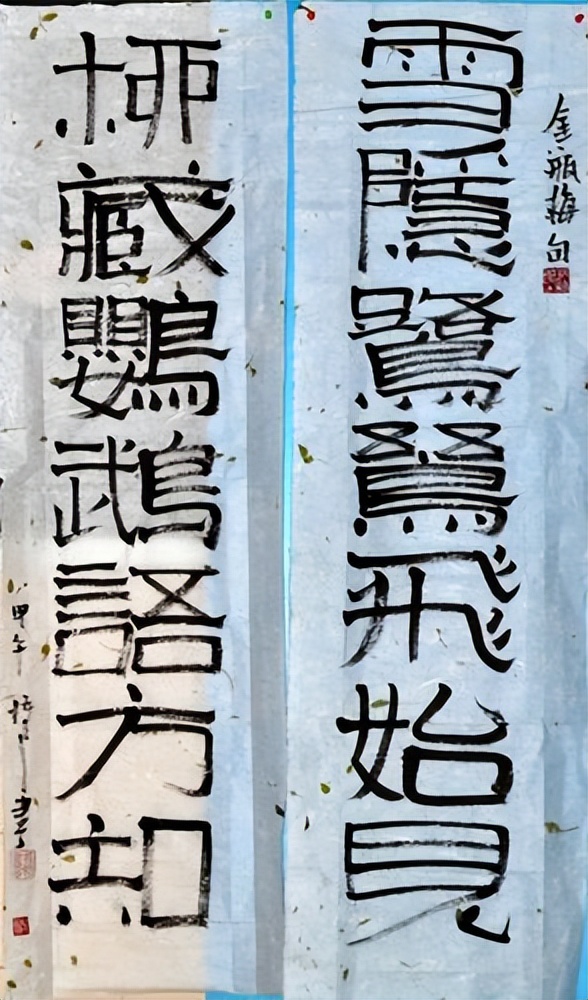 金瓶梅句
雪隱鷺鷥飛始見
柳藏鸚鵡語方知
甲午